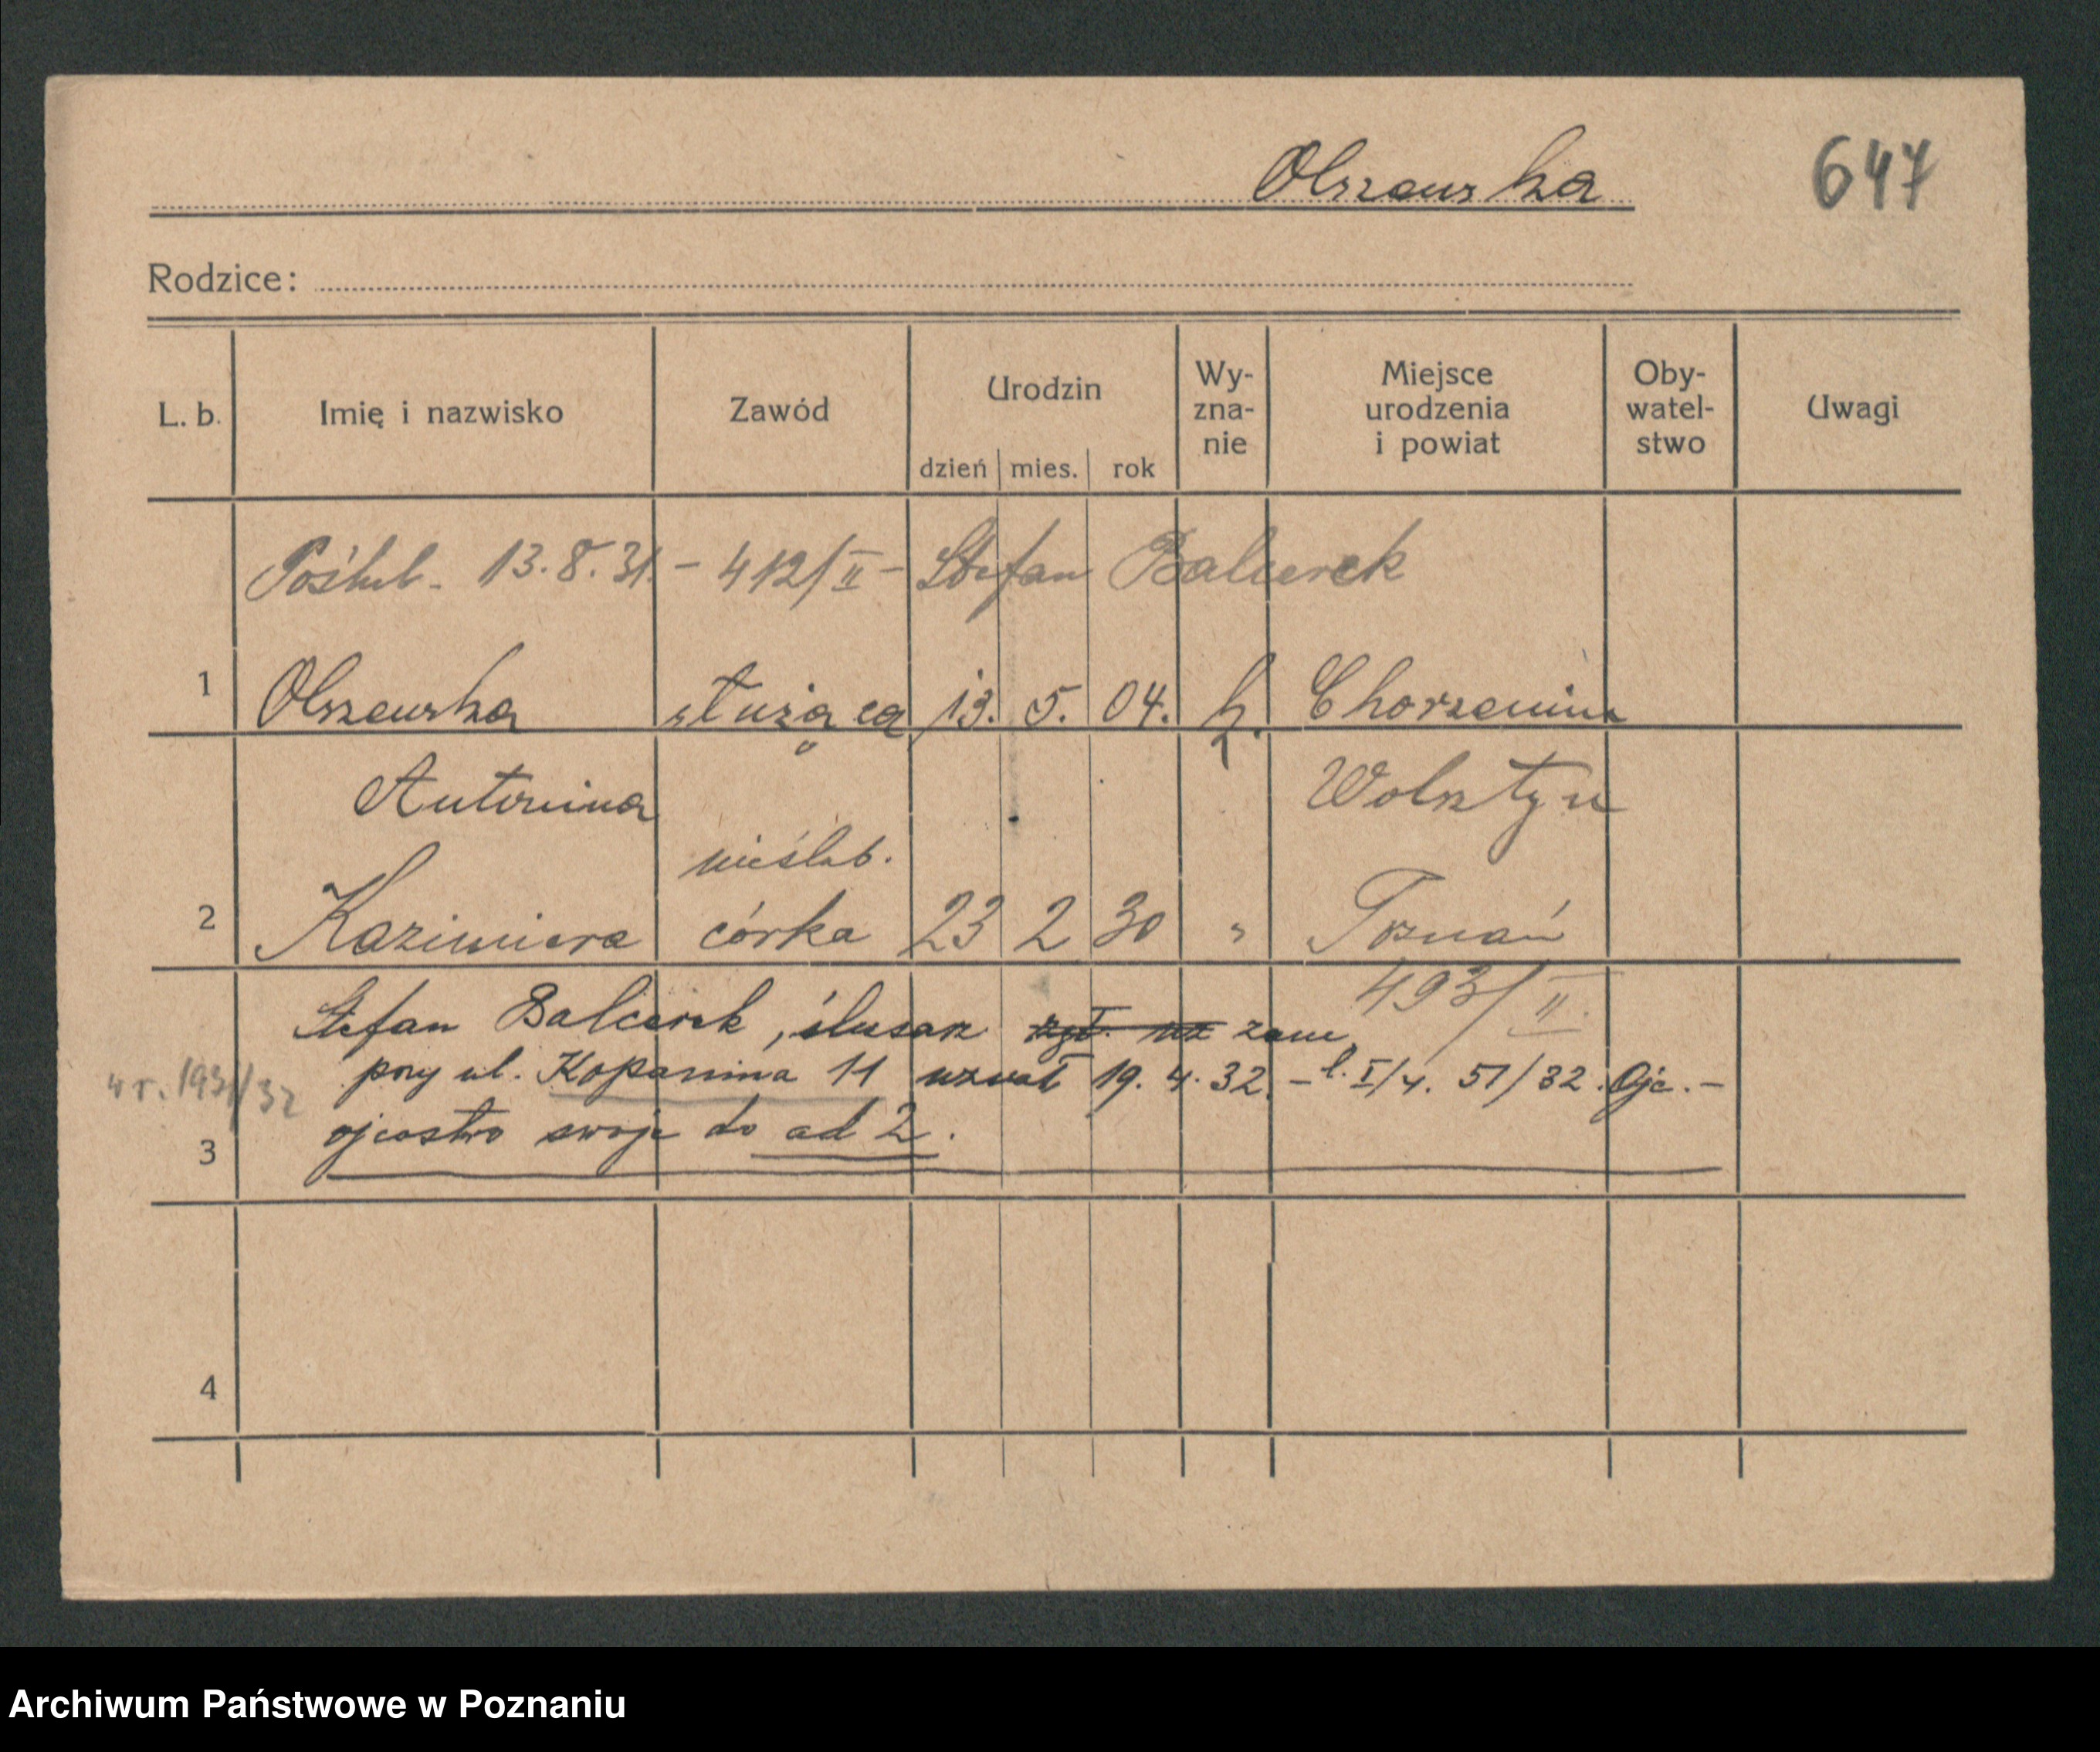 Olszewska
647
Rodzice:
L. b.
Imię i nazwisko
Zawód
Urodzin
dzień mies. rok
Wy-
zna-
nie
Miejsce
urodzenia
i powiat
Oby-
watel-
stwo
Uwagi
Poślub. 13.8.31. - 412/II - Stefan Balcerek
1 Olszewska służąca 13. 5. 04. k. Chorzemin
Antonina Wolsztyn
nieślub.
2 Kazimiera córka 23 2 30 " Poznań
493/II.
Stefan Balcerek, ślusarz zgł. na zam.
przy ul. Kopanina 11 uznał 19. 4. 32. - l. I/4. 51/32. Ojc. -
w r. 1931/32
ojcostwo swoje do ad 2.
3
4
Archiwum Państwowe w Poznaniu